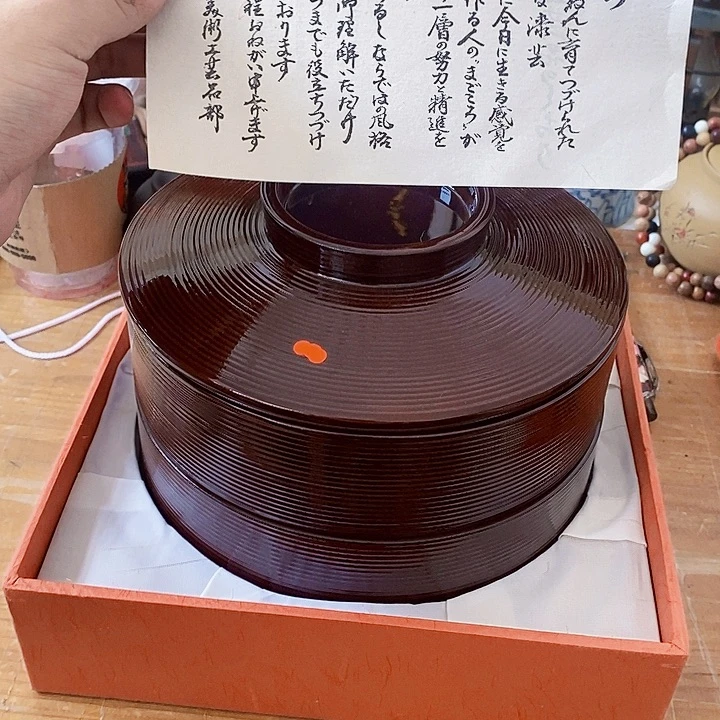 ねんに育てつづけられた
な漆芸
に今日に生きる感覚を
作る人の"まごころ"が
一層の努力と精進を
るしならではの風格
御理解いただけ
つまでも役立ちつづけ
おります
程おねがい申上げます
美術工芸品部